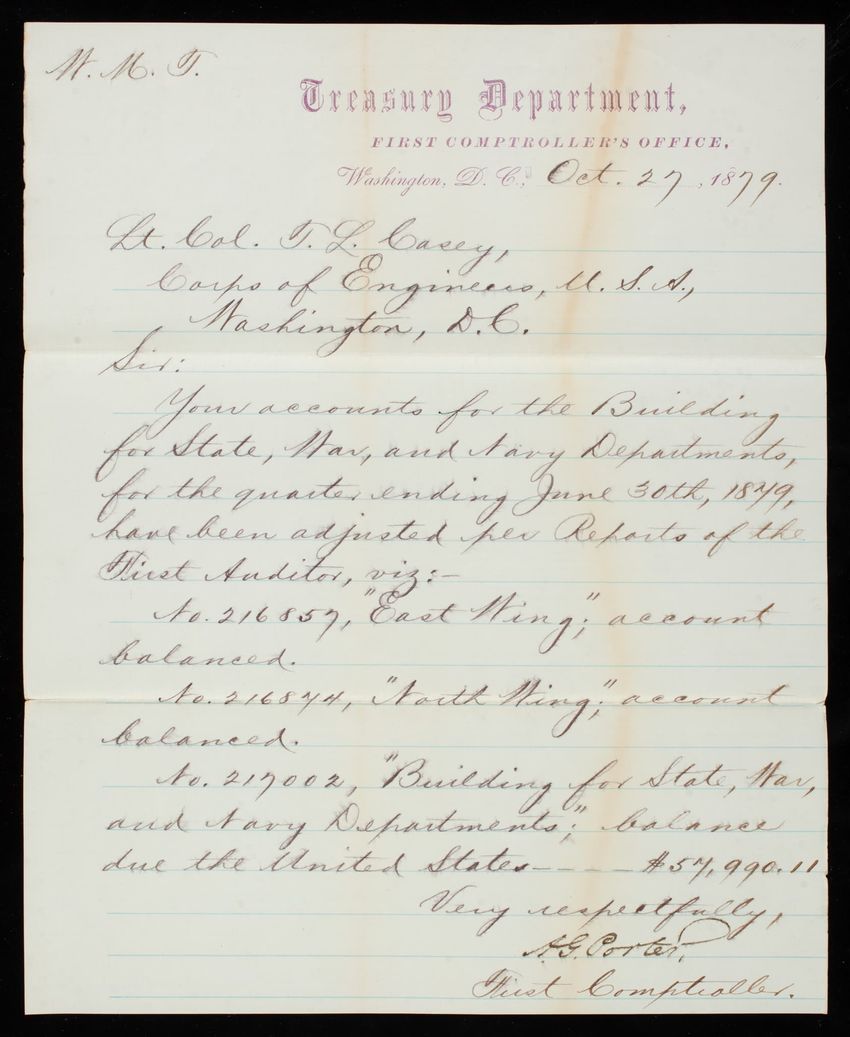 W. M. T.
Treasury Department,
FIRST COMPTROLLER'S OFFICE,
Washington, D. C., Oct. 27, 1879.
Lt. Col. T. L. Casey,
Corps of Engineers, U. S. A.,
Washington, D.C.
Sir:
Your accounts for the Building
for State, War, and Navy Departments,
for the quarter ending June 30th, 1879,
have been adjusted per Reports of the
First Auditor, viz:-
No. 216857, "East Wing;" account
balanced.
No. 216874, "North Wing;" account
balanced.
No. 217002, "Building for State, War,
and Navy Departments;" balance
due the United States - - - - $57,990.11
Very respectfully,
A.G. Porter,
First Comptroller.